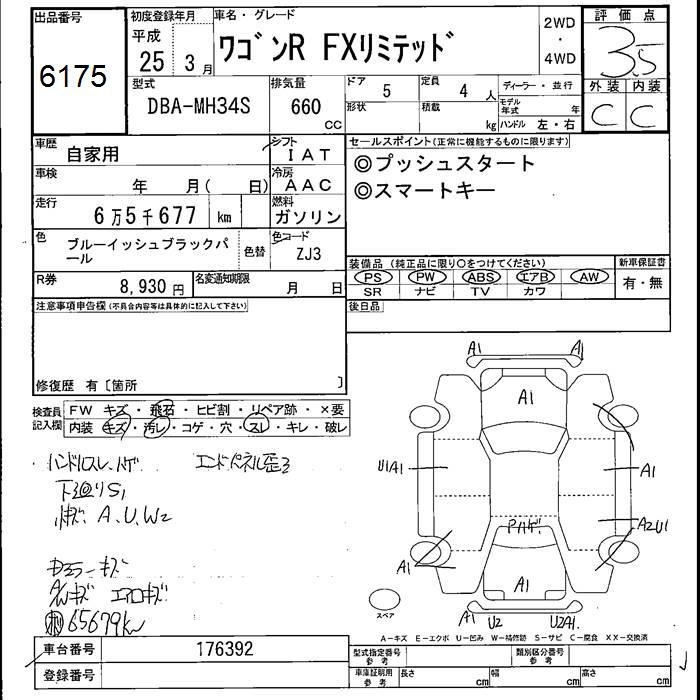 出品番号
6175
初度登録年月
平成
25 3月
車名・グレード
ワゴンR FXリミテッド
2WD
・
4WD
評価点
3.5
外装 内装
C C
型式
DBA-MH34S
排気量
660
cc
ドア 5
定員 4 人
形状
積載 kg
ディーラー・並行
モデル年式 年
ハンドル 左・右
車歴 自家用
シフト IAT
車検 年 月( 日)
冷房 AAC
走行 6万5千677 km
燃料 ガソリン
色 ブルーイッシュブラックパール
色替
色コード ZJ3
R券 8,930 円
名変通知期限 月 日
セールスポイント(正常に機能するものに限ります)
◎プッシュスタート
◎スマートキー
装備品(純正品に限り○をつけてください)
PS PW ABS エアB AW
SR ナビ TV カワ
新車保証書
有・無
後日品
注意事項申告欄(不具合内容等は具体的に記入して下さい)
修復歴 有〔箇所 〕
検査員記入欄
FW キズ・飛石・ヒビ割・リペア跡・×要
内装 キズ・汚レ・コゲ・穴・スレ・キレ・破レ
ハンドルスレ、ハゲ エンドパネル歪ミ
下廻りS1
小キズ A、U、W2
ドアミラーキズ
A/Wキズ エアロキズ
65679km
A1 A1
A1
U1A1 A1
A2U1
Pハゲ
A1
A1
A1 U2 U2A1
スペア
A-キズ E-エクボ U-凹み W-補修跡 S-サビ C-腐食 XX-交換済
車台番号 176392
登録番号
型式指定番号 参考
類別区分番号 参考
車庫証明用 参考
長さ cm
幅 cm
高さ cm